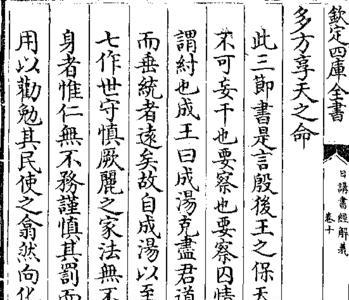 欽定四庫全書
日講書經解義
卷十
多方享天之命
此三節書是言殷後王之保天
不可妄干也要察也要察囚情
謂紂也成王曰成湯克盡君道
而垂統者遠矣故自成湯以至
七作世守慎厥麗之家法無不
身者惟仁無不務謹慎其罰而
用以勸勉其民使之翕然向化